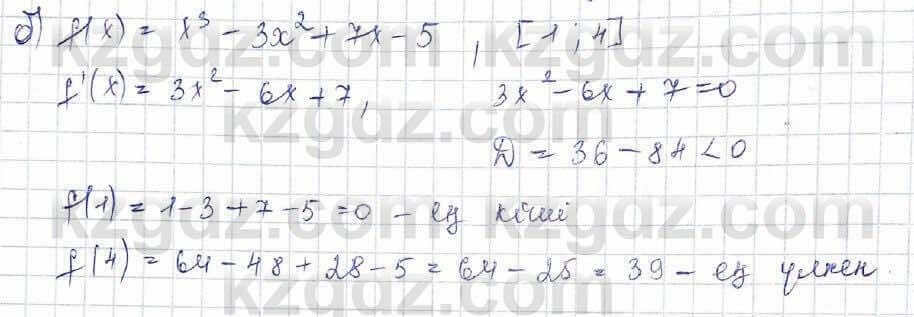 б) f(x) = x³ - 3x² + 7x - 5 , [1 ; 4]
f'(x) = 3x² - 6x + 7, 3x² - 6x + 7 = 0
D = 36 - 84 < 0
f(1) = 1 - 3 + 7 - 5 = 0 - ең кіші
f(4) = 64 - 48 + 28 - 5 = 64 - 25 = 39 - ең үлкен
kzgdz.com kzgdz.com
kzgdz.com kzgdz.com
kzgdz.com kzgdz.com